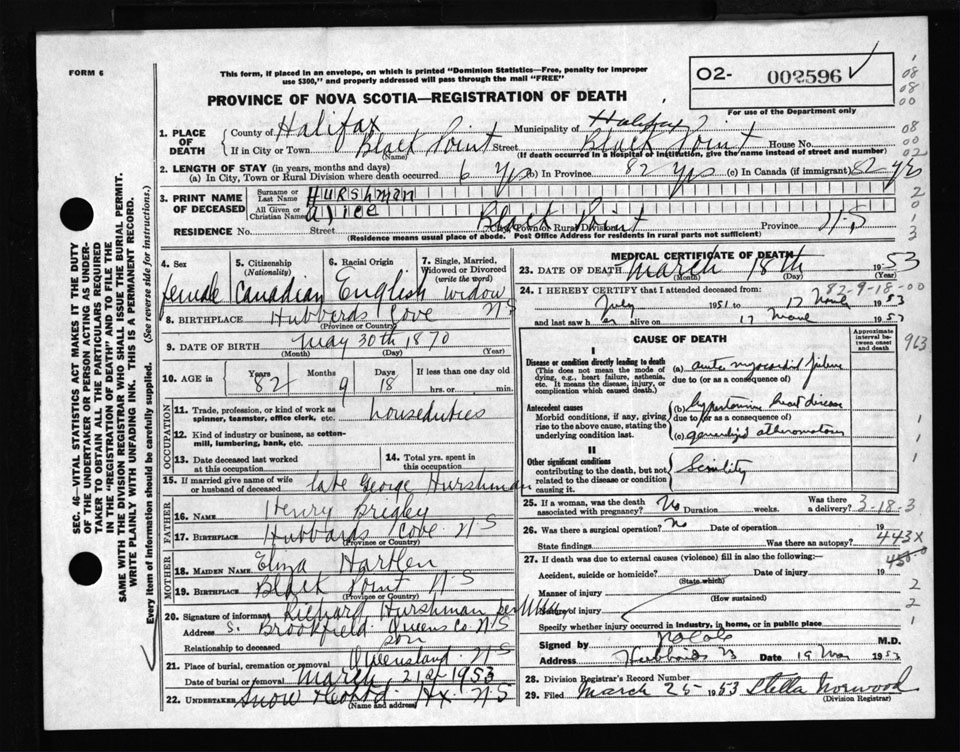 FORM 6
This form, if placed in an envelope, on which is printed "Dominion Statistics—Free, penalty for improper
use $300," and properly addressed will pass through the mail "FREE"
O2- 002596 ✓
For use of the Department only
PROVINCE OF NOVA SCOTIA—REGISTRATION OF DEATH
1. PLACE OF DEATH
County of Halifax Municipality of Halifax
If in City or Town Black Point Street Black Point House No.
(Name) (If death occurred in a Hospital or Institution, give the name instead of street and number)
2. LENGTH OF STAY (in years, months and days)
(a) In City, Town or Rural Division where death occurred 6 yrs (b) In Province 82 yrs (c) In Canada (if immigrant) 82 yrs
3. PRINT NAME OF DECEASED
Surname or Last Name Hurshman
All Given or Christian Names alice
RESIDENCE No. Street Black Point City, Town or Rural Division Province N.S
(Residence means usual place of abode. Post Office Address for residents in rural parts not sufficient)
4. Sex female
5. Citizenship (Nationality) Canadian
6. Racial Origin English
7. Single, Married, Widowed or Divorced (write the word) widow
8. BIRTHPLACE Hubbards Cove N S
(Province or Country)
9. DATE OF BIRTH may 30th 1870
(Month) (Day) (Year)
10. AGE in Years 82 Months 9 Days 18 If less than one day old
hrs. or min.
OCCUPATION
11. Trade, profession, or kind of work as spinner, teamster, office clerk, etc. houseduties
12. Kind of industry or business, as cotton-mill, lumbering, bank, etc.
13. Date deceased last worked at this occupation
14. Total yrs. spent in this occupation
15. If married give name of wife or husband of deceased late George Hurshman
FATHER
16. NAME Henry
17. BIRTHPLACE Hubbards Cove N S
(Province or Country)
MOTHER
18. MAIDEN NAME Eliza Hartlen
19. BIRTHPLACE Black Point N.S
(Province or Country)
20. Signature of informant Richard Hurshman per
Address S. Brookfield Queens Co. N S
Relationship to deceased son
21. Place of burial, cremation or removal Queensland N S
Date of burial or removal march 21st 1953
22. UNDERTAKER Snow Hx. N S
(Name and address)
MEDICAL CERTIFICATE OF DEATH
23. DATE OF DEATH march 18th 1953
(Day) (Year)
24. I HEREBY CERTIFY that I attended deceased from:
82-9-18-00
July 1951 to 17 1953
and last saw her alive on 17 1953
CAUSE OF DEATH
Approximate interval between onset and death
I
Disease or condition directly leading to death
(This does not mean the mode of dying, e.g., heart failure, asthenia, etc. It means the disease, injury, or complication which caused death.)
(a) acute myocardial failure
due to (or as a consequence of)
Antecedent causes
Morbid conditions, if any, giving rise to the above cause, stating the underlying condition last.
(b) hypertensive heart disease
due to (or as a consequence of)
(c) generalized
II
Other significant conditions
contributing to the death, but not related to the disease or condition causing it.
Senility
25. If a woman, was the death associated with pregnancy? No Duration weeks. Was there a delivery? 3-18-3
26. Was there a surgical operation? no Date of operation 19
State findings Was there an autopsy? 443X
27. If death was due to external causes (violence) fill in also the following:
Accident, suicide or homicide? Date of injury 19
(State which)
Manner of injury
(How sustained)
Nature of injury
Specify whether injury occurred in industry, in home, or in public place
Signed by M.D.
Address Hubbards Date 19 1953
28. Division Registrar's Record Number
29. Filed March 25 1953 Stella Norwood
(Division Registrar)
SEC. 46—VITAL STATISTICS ACT MAKES IT THE DUTY
OF THE UNDERTAKER OR PERSON ACTING AS UNDER-
TAKER TO OBTAIN ALL THE PARTICULARS REQUIRED
IN THE "REGISTRATION OF DEATH" AND TO FILE THE
SAME WITH THE DIVISION REGISTRAR WHO SHALL ISSUE THE BURIAL PERMIT.
WRITE PLAINLY WITH UNFADING INK. THIS IS A PERMANENT RECORD.
Every item of information should be carefully supplied. (See reverse side for instructions.)